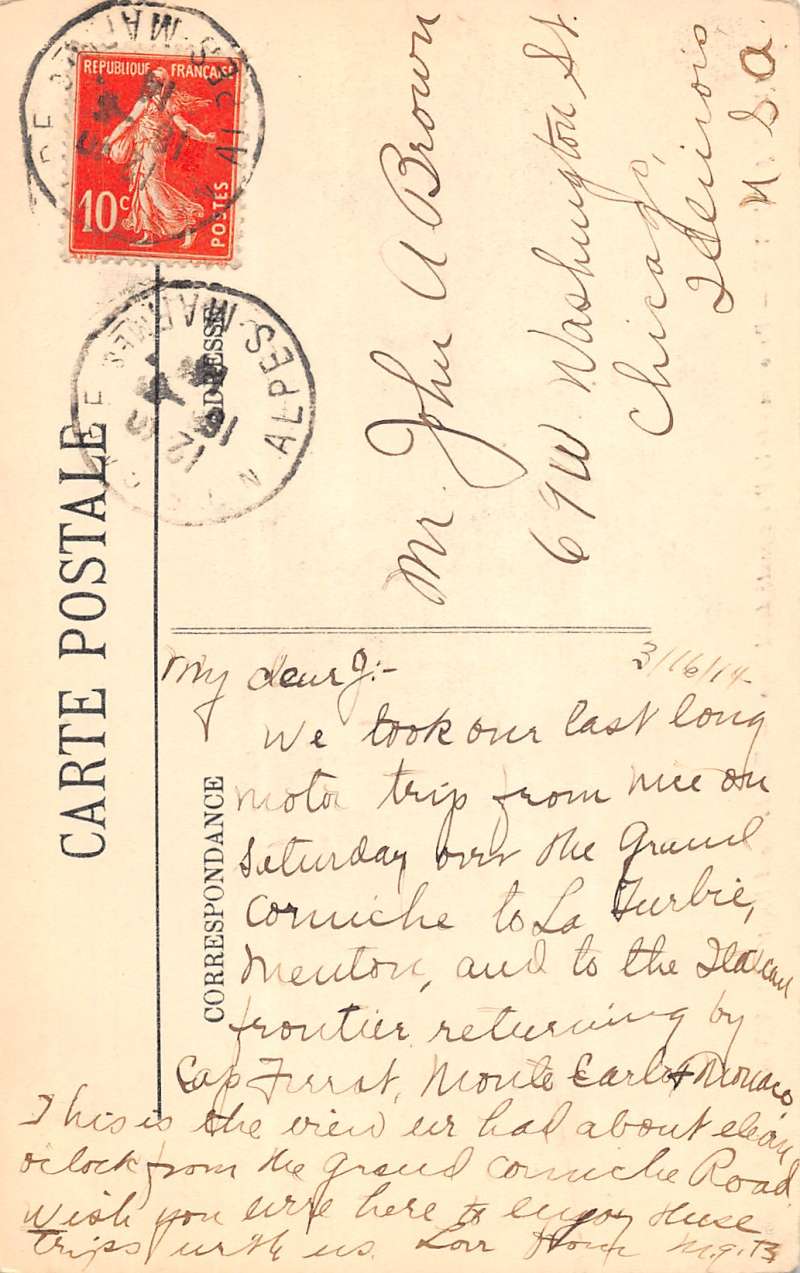 REPUBLIQUE FRANCAISE
10c
POSTES
ALPES-MARMES
12
16
ALPES-MARMES
CARTE POSTALE
ADRESSE
Mr. John A Brown
69 W. Washington St.
Chicago,
Illinois
U. S. A.
CORRESPONDANCE
3/16/14
My dear J:-
We took our last long
motor trip from Nice on
Saturday over the Grand
Corniche to La Turbie,
Menton, and to the Italian
frontier returning by
Cap Ferrat, Monte Carlo + Monaco
This is the view we had about eleven
oclock from the Grand Corniche Road
Wish you were here to enjoy these
trips with us. Love from M.G.B